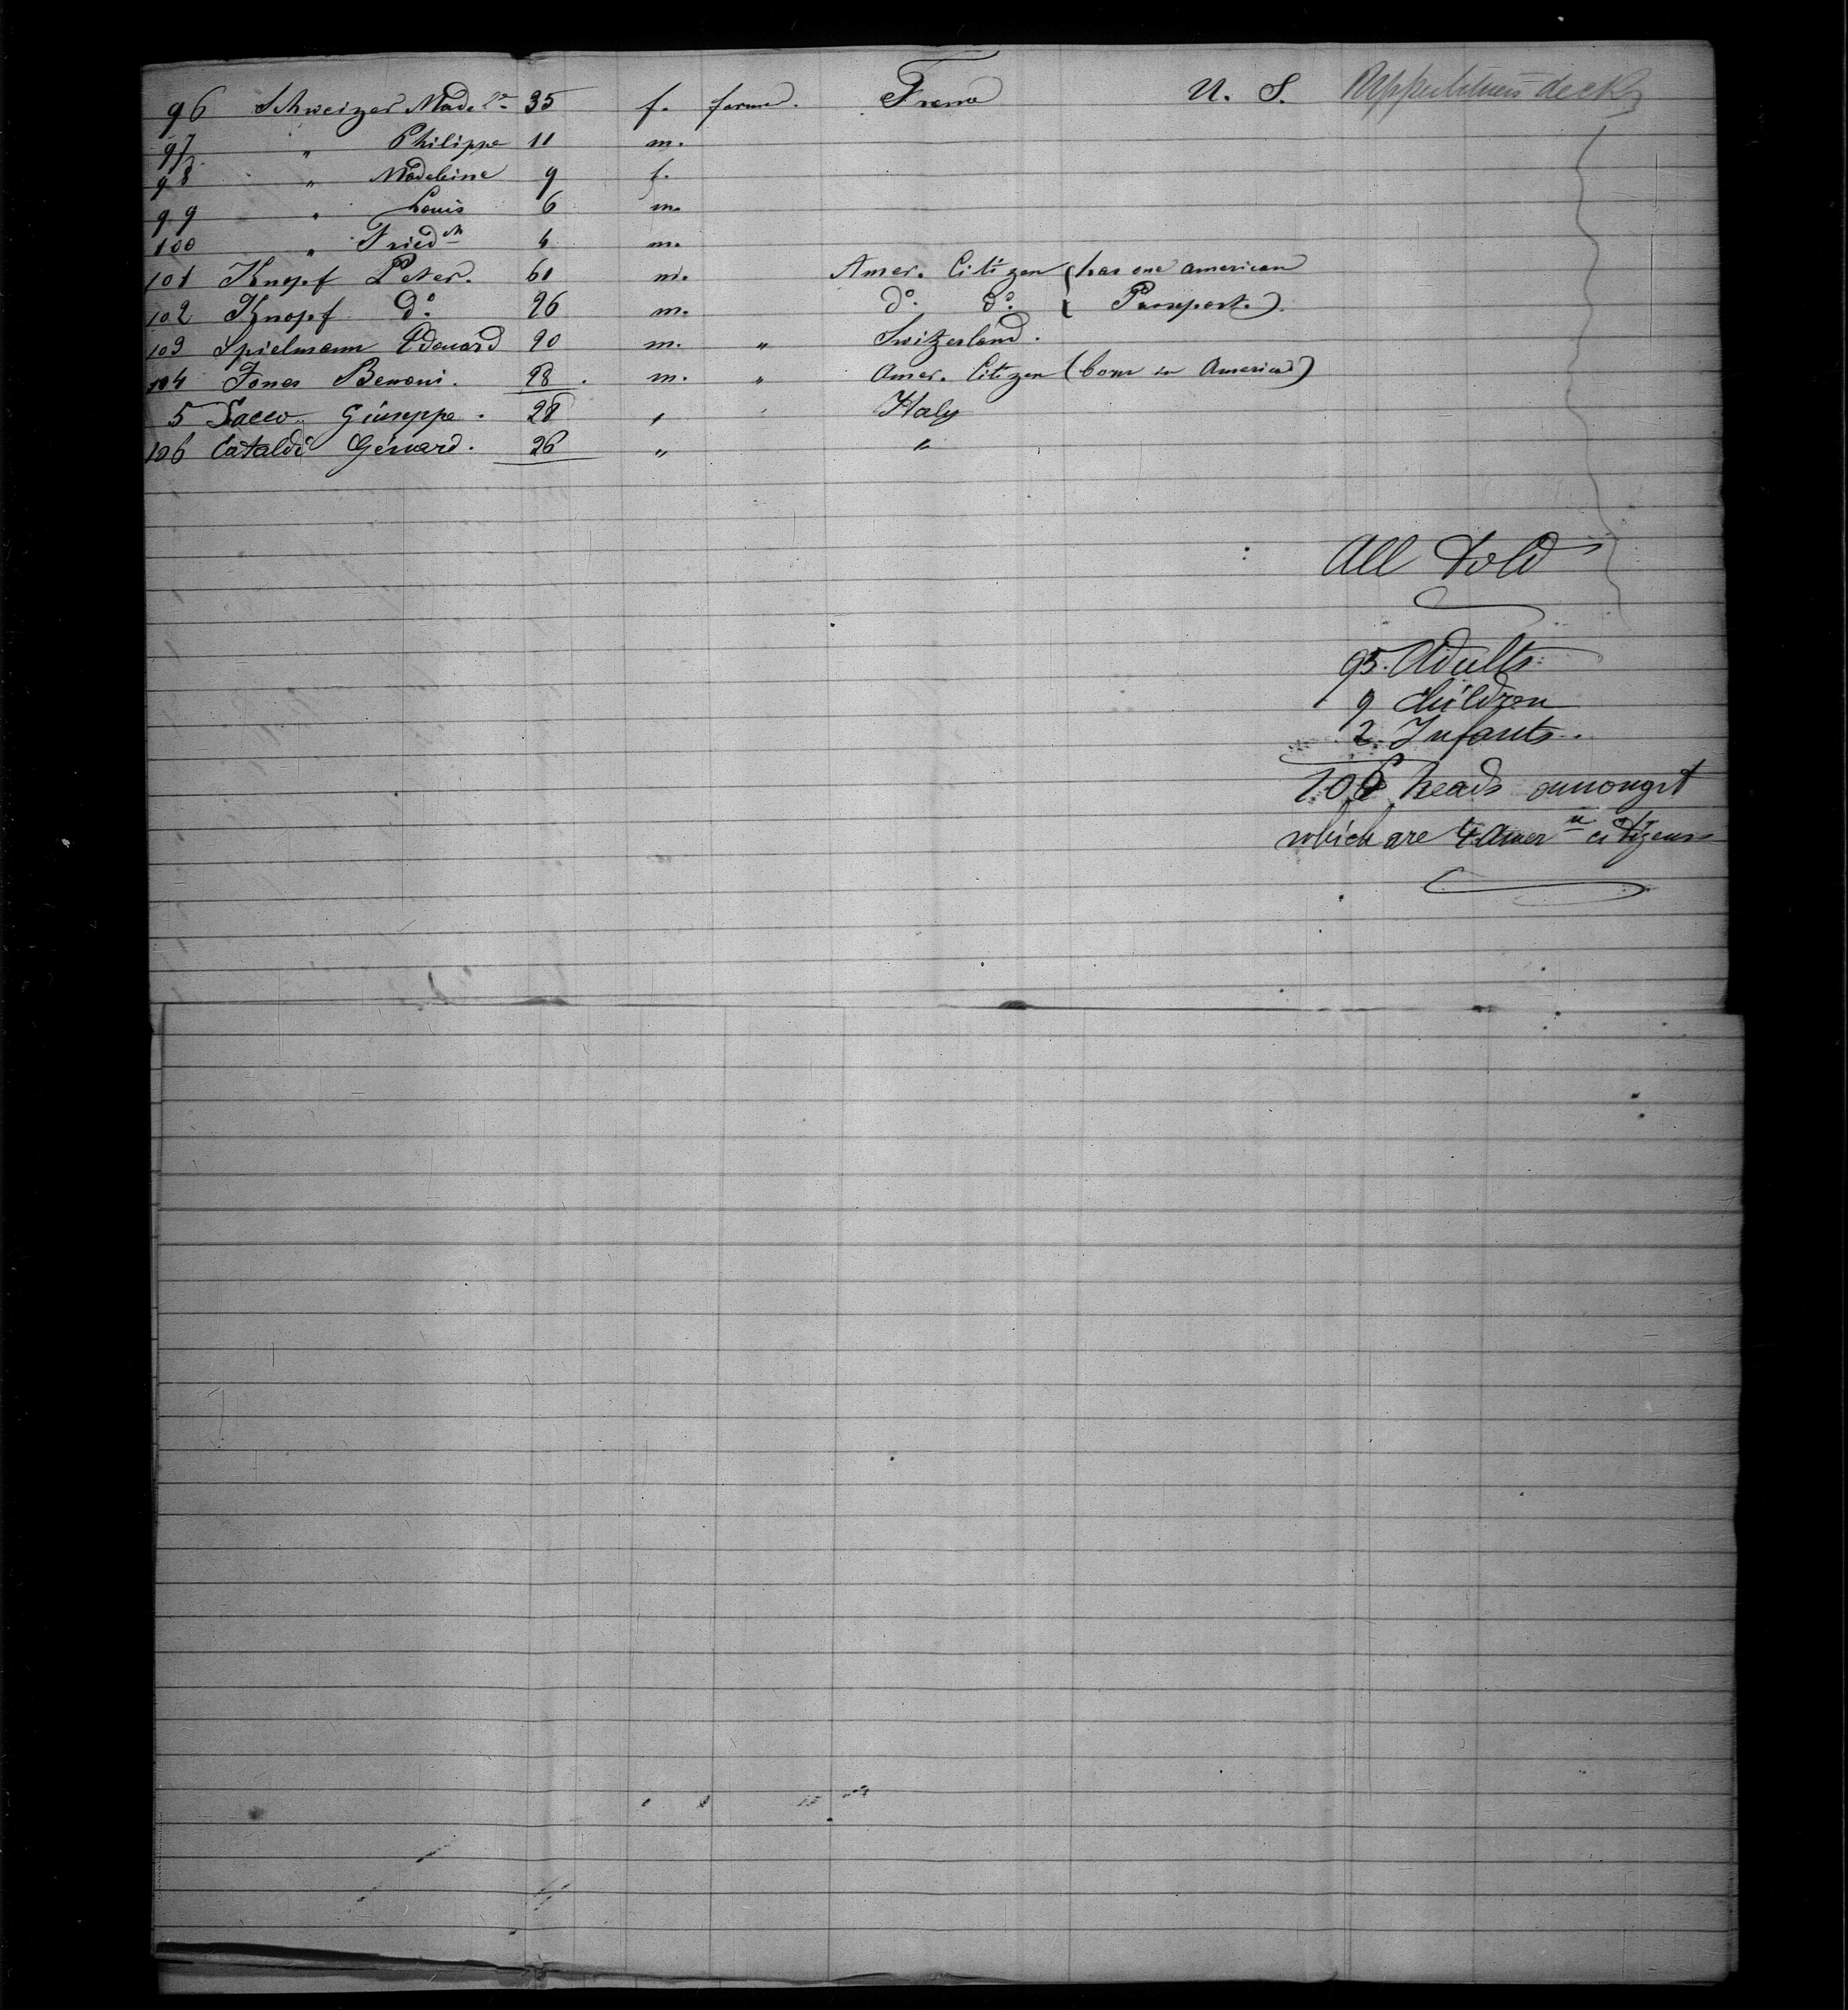 96 Schweizer Made 35 f. farmer. France U. S. Upper between deck
97 " Philippe 11 m.
98 " Madeleine 9 f.
99 " Louis 6 m.
100 " Fried^ch 4 m.
101 Knopf Peter. 61 m. Amer. Citizen (has one american
102 Knopf d°. 26 m. d°. d°. ( Passport.)
103 Spielmann Edouard 20 m. " Switzerland.
104 Jones Benoni. 28. m. " Amer. Citizen (born in America)
5 Sacco Giuseppe. 28 " " Italy
106 Cataldi Génard. 26 " "
All told
95. Adults
9 children
2. Infants.
106 heads amongst
which are 4 Amer^n citizens